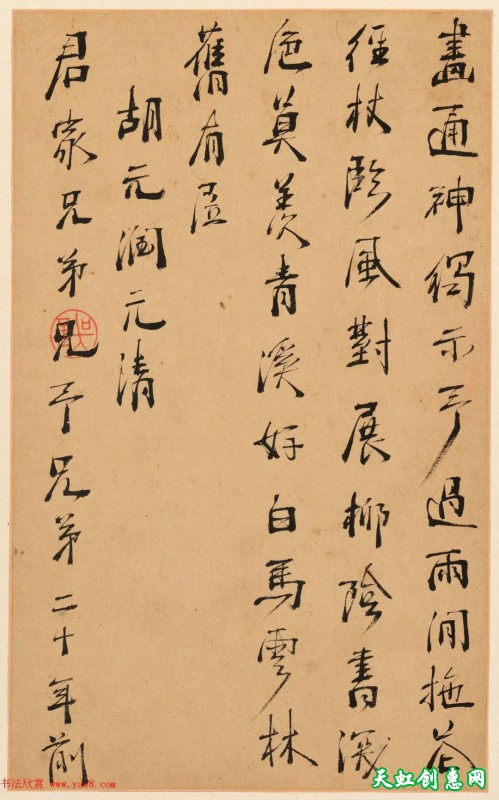 畫通神獨示予過雨閒拖苔
徑杖臨風對展柳陰書
莫羨青溪好白馬雲林
舊有
胡元潤元清
君家兄弟兄予兄弟二十年前
书法欣赏 www.yac8.com
天虹创惠网